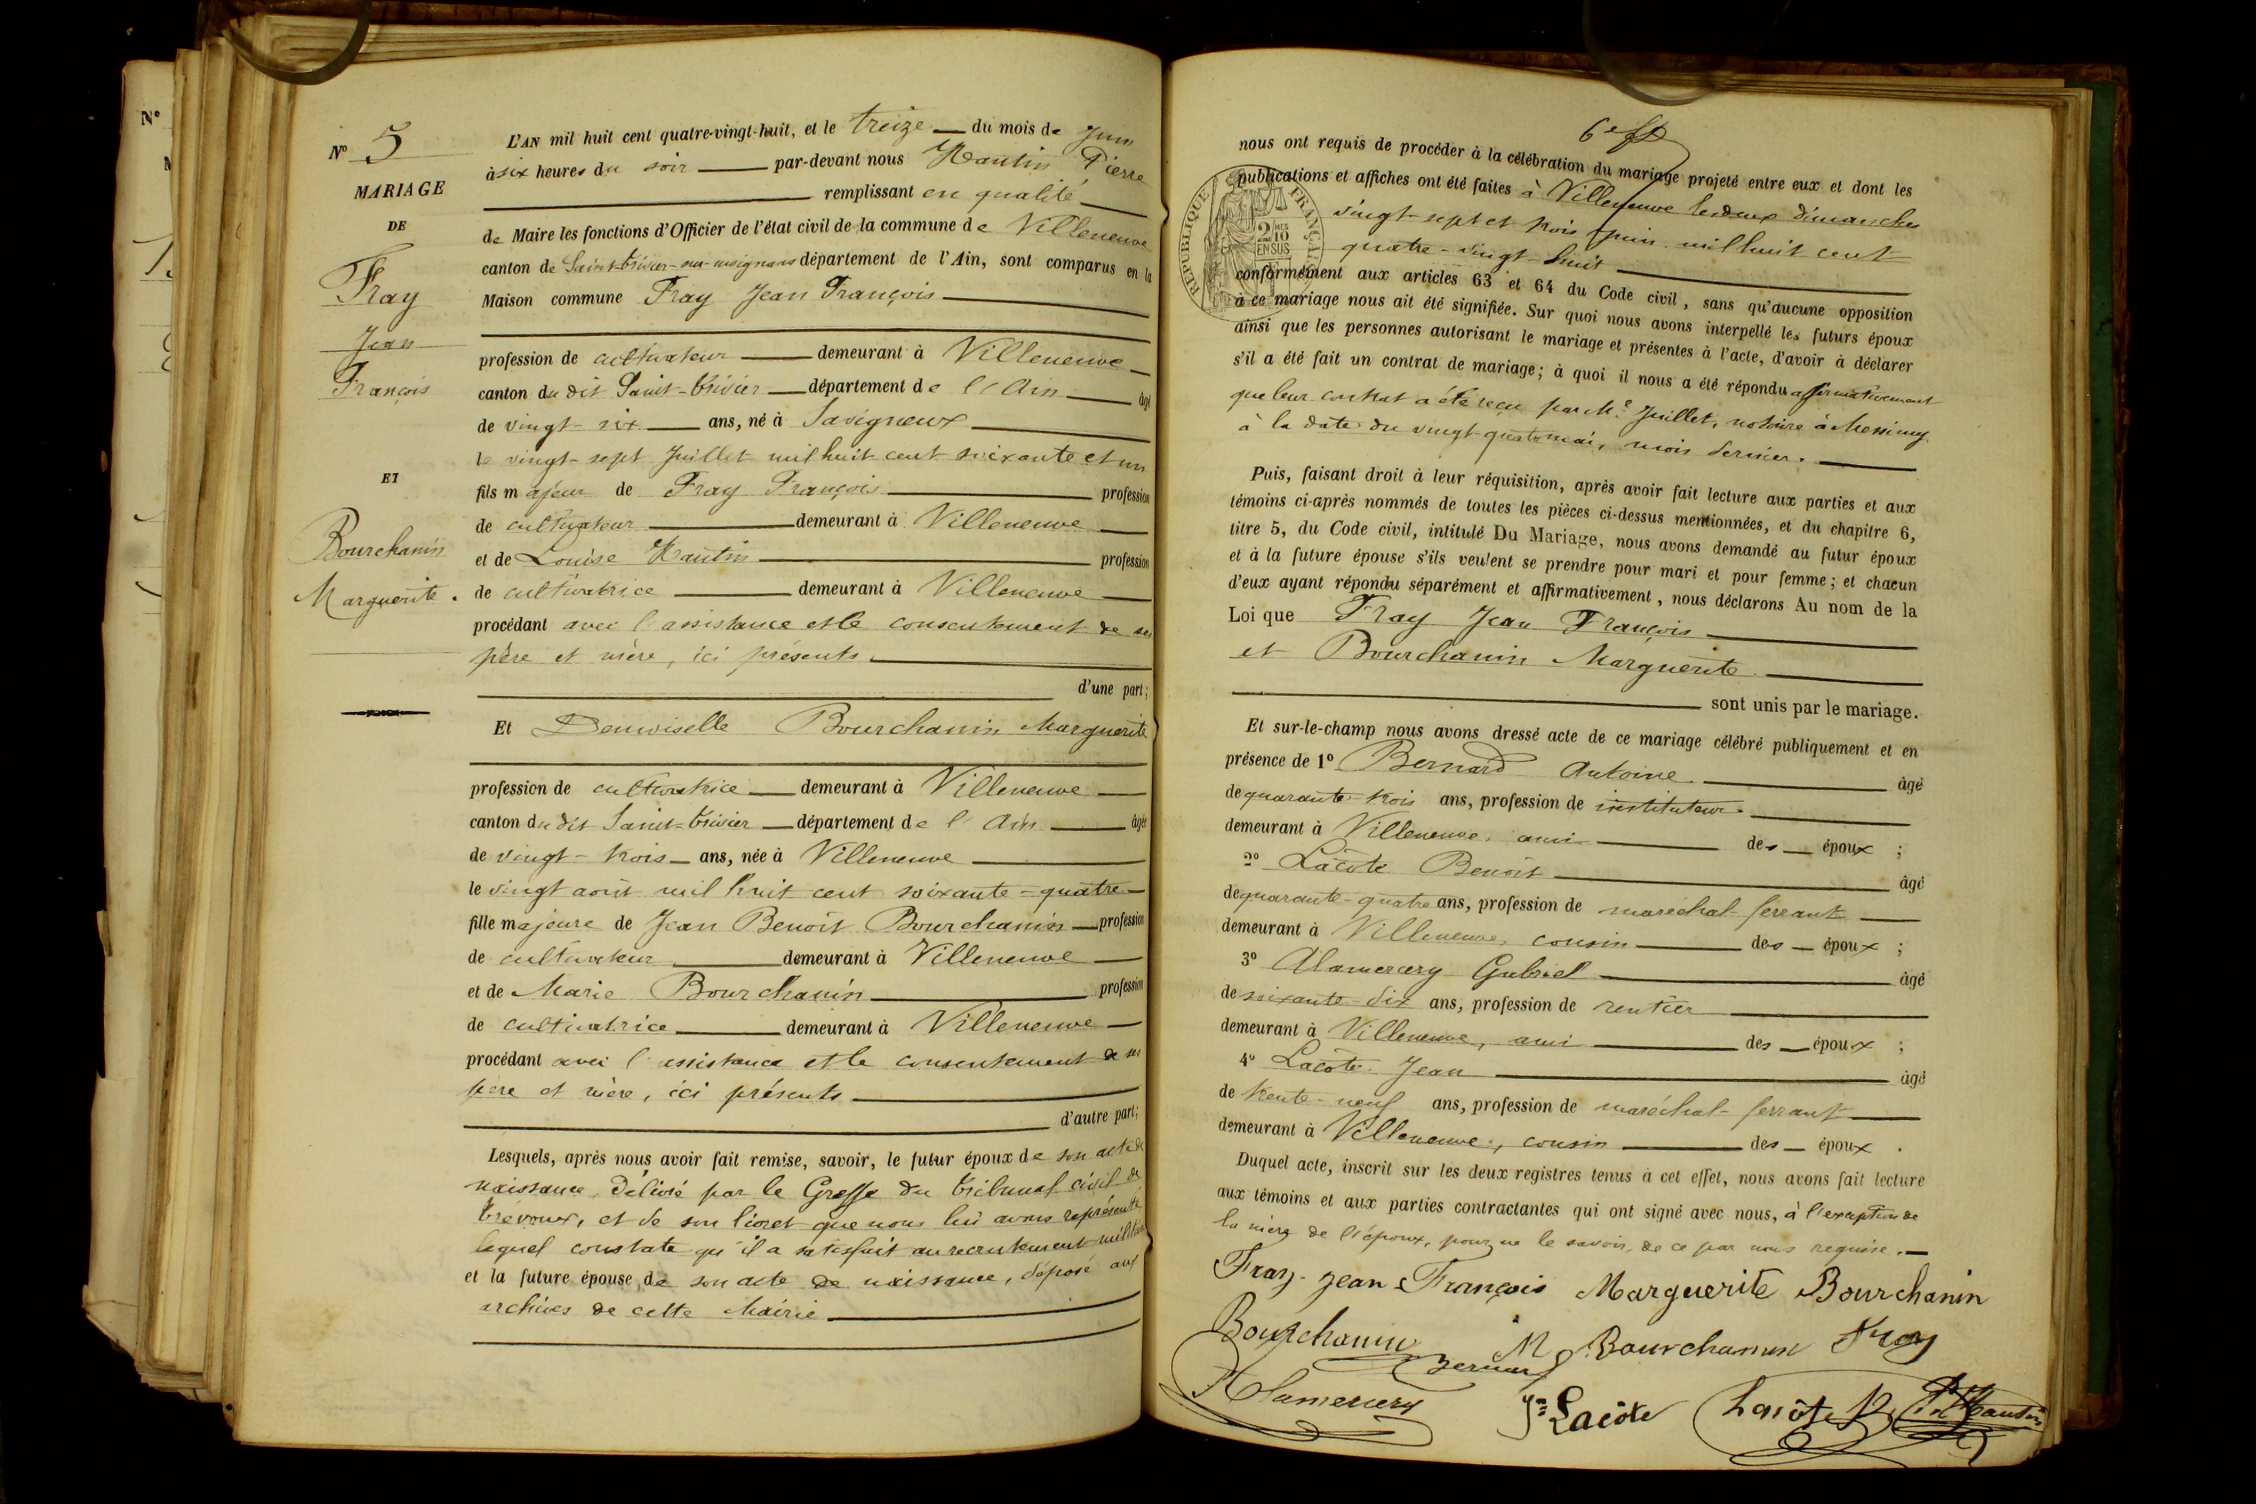 N°
N° 5
MARIAGE
DE
Fray
Jean
François
ET
Bourchanin
Marguerite.
L'AN mil huit cent quatre-vingt-huit, et le treize du mois de Juin
à six heures du soir par-devant nous Hautin Pierre
remplissant en qualité
de Maire les fonctions d'Officier de l'état civil de la commune de Villeneuve
canton de Saint-Trivier-sur-moignans département de l'Ain, sont comparus en la
Maison commune Fray Jean François
profession de cultivateur demeurant à Villeneuve
canton du dit Saint-Trivier département de l'Ain âgé
de vingt-six ans, né à Savigneux
le vingt-sept Juillet mil huit cent soixante et un
fils majeur de Fray François profession
de cultivateur demeurant à Villeneuve
et de Louise Hautin profession
de cultivatrice demeurant à Villeneuve
procédant avec l'assistance et le consentement de ses
père et mère, ici présents
d'une part;
Et Demoiselle Bourchanin Marguerite
profession de cultivatrice demeurant à Villeneuve
canton du dit Saint-Trivier département de l'Ain âgée
de vingt-trois ans, née à Villeneuve
le vingt août mil huit cent soixante-quatre
fille majeure de Jean Benoît Bourchanin profession
de cultivateur demeurant à Villeneuve
et de Marie Bourchanin profession
de cultivatrice demeurant à Villeneuve
procédant avec l'assistance et le consentement de ses
père et mère, ici présents
d'autre part;
Lesquels, après nous avoir fait remise, savoir, le futur époux de son acte de
naissance, délivré par le Greffe du tribunal civil de
Trevoux, et de son livret que nous lui avons représenté
lequel constate qu'il a satisfait au recrutement militaire
et la future épouse de son acte de naissance, déposé aux
archives de cette Mairie
6e
nous ont requis de procéder à la célébration du mariage projeté entre eux et dont les
publications et affiches ont été faites à Villeneuve les deux dimanches
vingt-sept et trois juin mil huit cent
quatre-vingt-huit
RÉPUBLIQUE FRANÇAISE
2/10 EN SUS
conformément aux articles 63 et 64 du Code civil, sans qu'aucune opposition
à ce mariage nous ait été signifiée. Sur quoi nous avons interpellé les futurs époux
ainsi que les personnes autorisant le mariage et présentes à l'acte, d'avoir à déclarer
s'il a été fait un contrat de mariage; à quoi il nous a été répondu affirmativement
que leur contrat a été reçu par Me Juillet, notaire à Messimy
à la date du vingt-quatre mai, mois dernier.
Puis, faisant droit à leur réquisition, après avoir fait lecture aux parties et aux
témoins ci-après nommés de toutes les pièces ci-dessus mentionnées, et du chapitre 6,
titre 5, du Code civil, intitulé Du Mariage, nous avons demandé au futur époux
et à la future épouse s'ils veulent se prendre pour mari et pour femme; et chacun
d'eux ayant répondu séparément et affirmativement, nous déclarons Au nom de la
Loi que Fray Jean François
et Bourchanin Marguerite
sont unis par le mariage.
Et sur-le-champ nous avons dressé acte de ce mariage célébré publiquement et en
présence de 1° Bernard Antoine âgé
de quarante-trois ans, profession de instituteur
demeurant à Villeneuve, ami des époux ;
2° Lacôte Benoît âgé
de quarante-quatre ans, profession de maréchal-ferrant
demeurant à Villeneuve, cousin des époux ;
3° Alamercery Gabriel âgé
de soixante-dix ans, profession de rentier
demeurant à Villeneuve, ami des époux ;
4° Lacôte Jean âgé
de trente-neuf ans, profession de maréchal-ferrant
demeurant à Villeneuve, cousin des époux .
Duquel acte, inscrit sur les deux registres tenus à cet effet, nous avons fait lecture
aux témoins et aux parties contractantes qui ont signé avec nous, à l'exception de
la mère de l'époux, pour ne le savoir, de ce par nous requise.
Fray-jean François Marguerite Bourchanin
Bourchanin M Bourchanin Fray
Bernard
Alamercery Jn Lacôte Lacôte B Pre Hautin